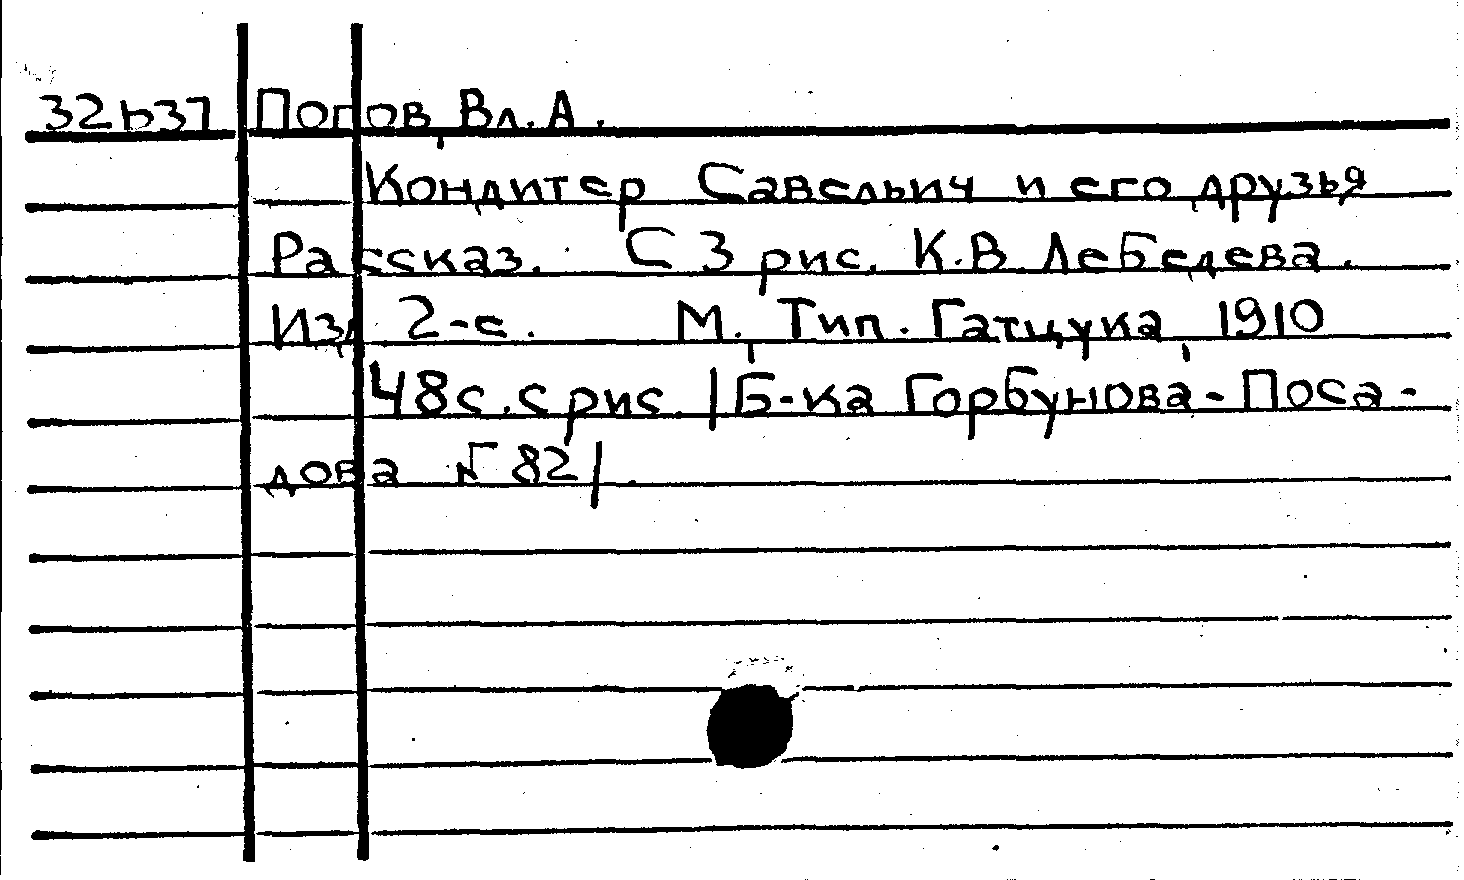 32ь37 Попов, Вл. А.
Кондитер Савельич и его друзья
Рассказ. С 3 рис. К.В. Лебедева.
Изд 2-е. М., Тип. Гатцука, 1910
48с. с рис. |Б-ка Горбунова-Поса-
дова № 82|.